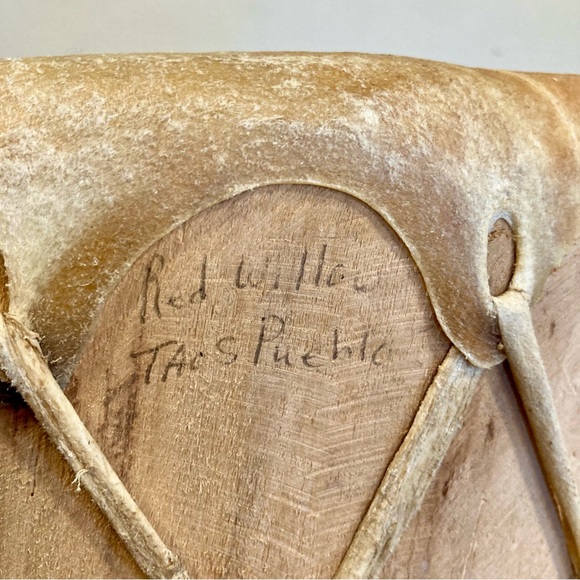 Red Willow
TAOS Pueblo